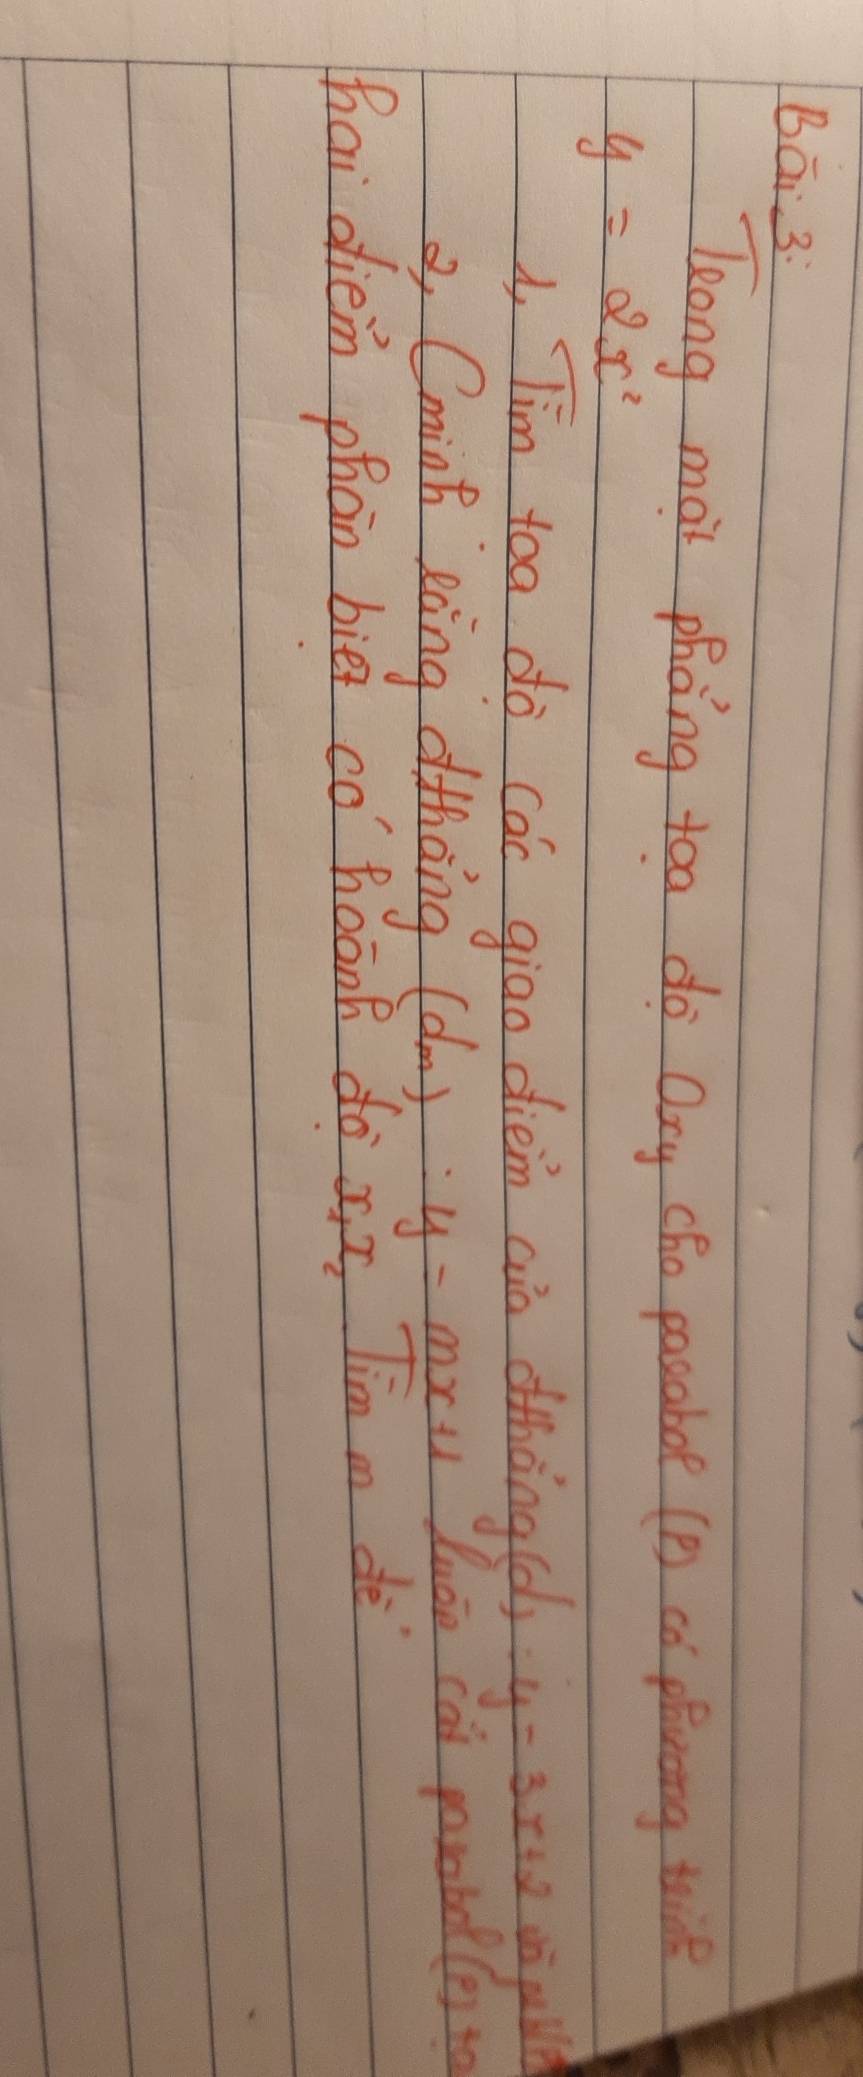 Bài 3:
Trong mặt phẳng tọa độ Oxy cho parabol (P) có phương trình
y = 2x²
1, Tìm tọa độ các giao điểm của đthẳng (d) : y = 3x+2 và
2, Cminh rằng đthẳng (dm) : y = mx+1 luôn cắt parabol (P) tại
hai điểm phân biệt có hoành độ x₁, x₂. Tìm m để